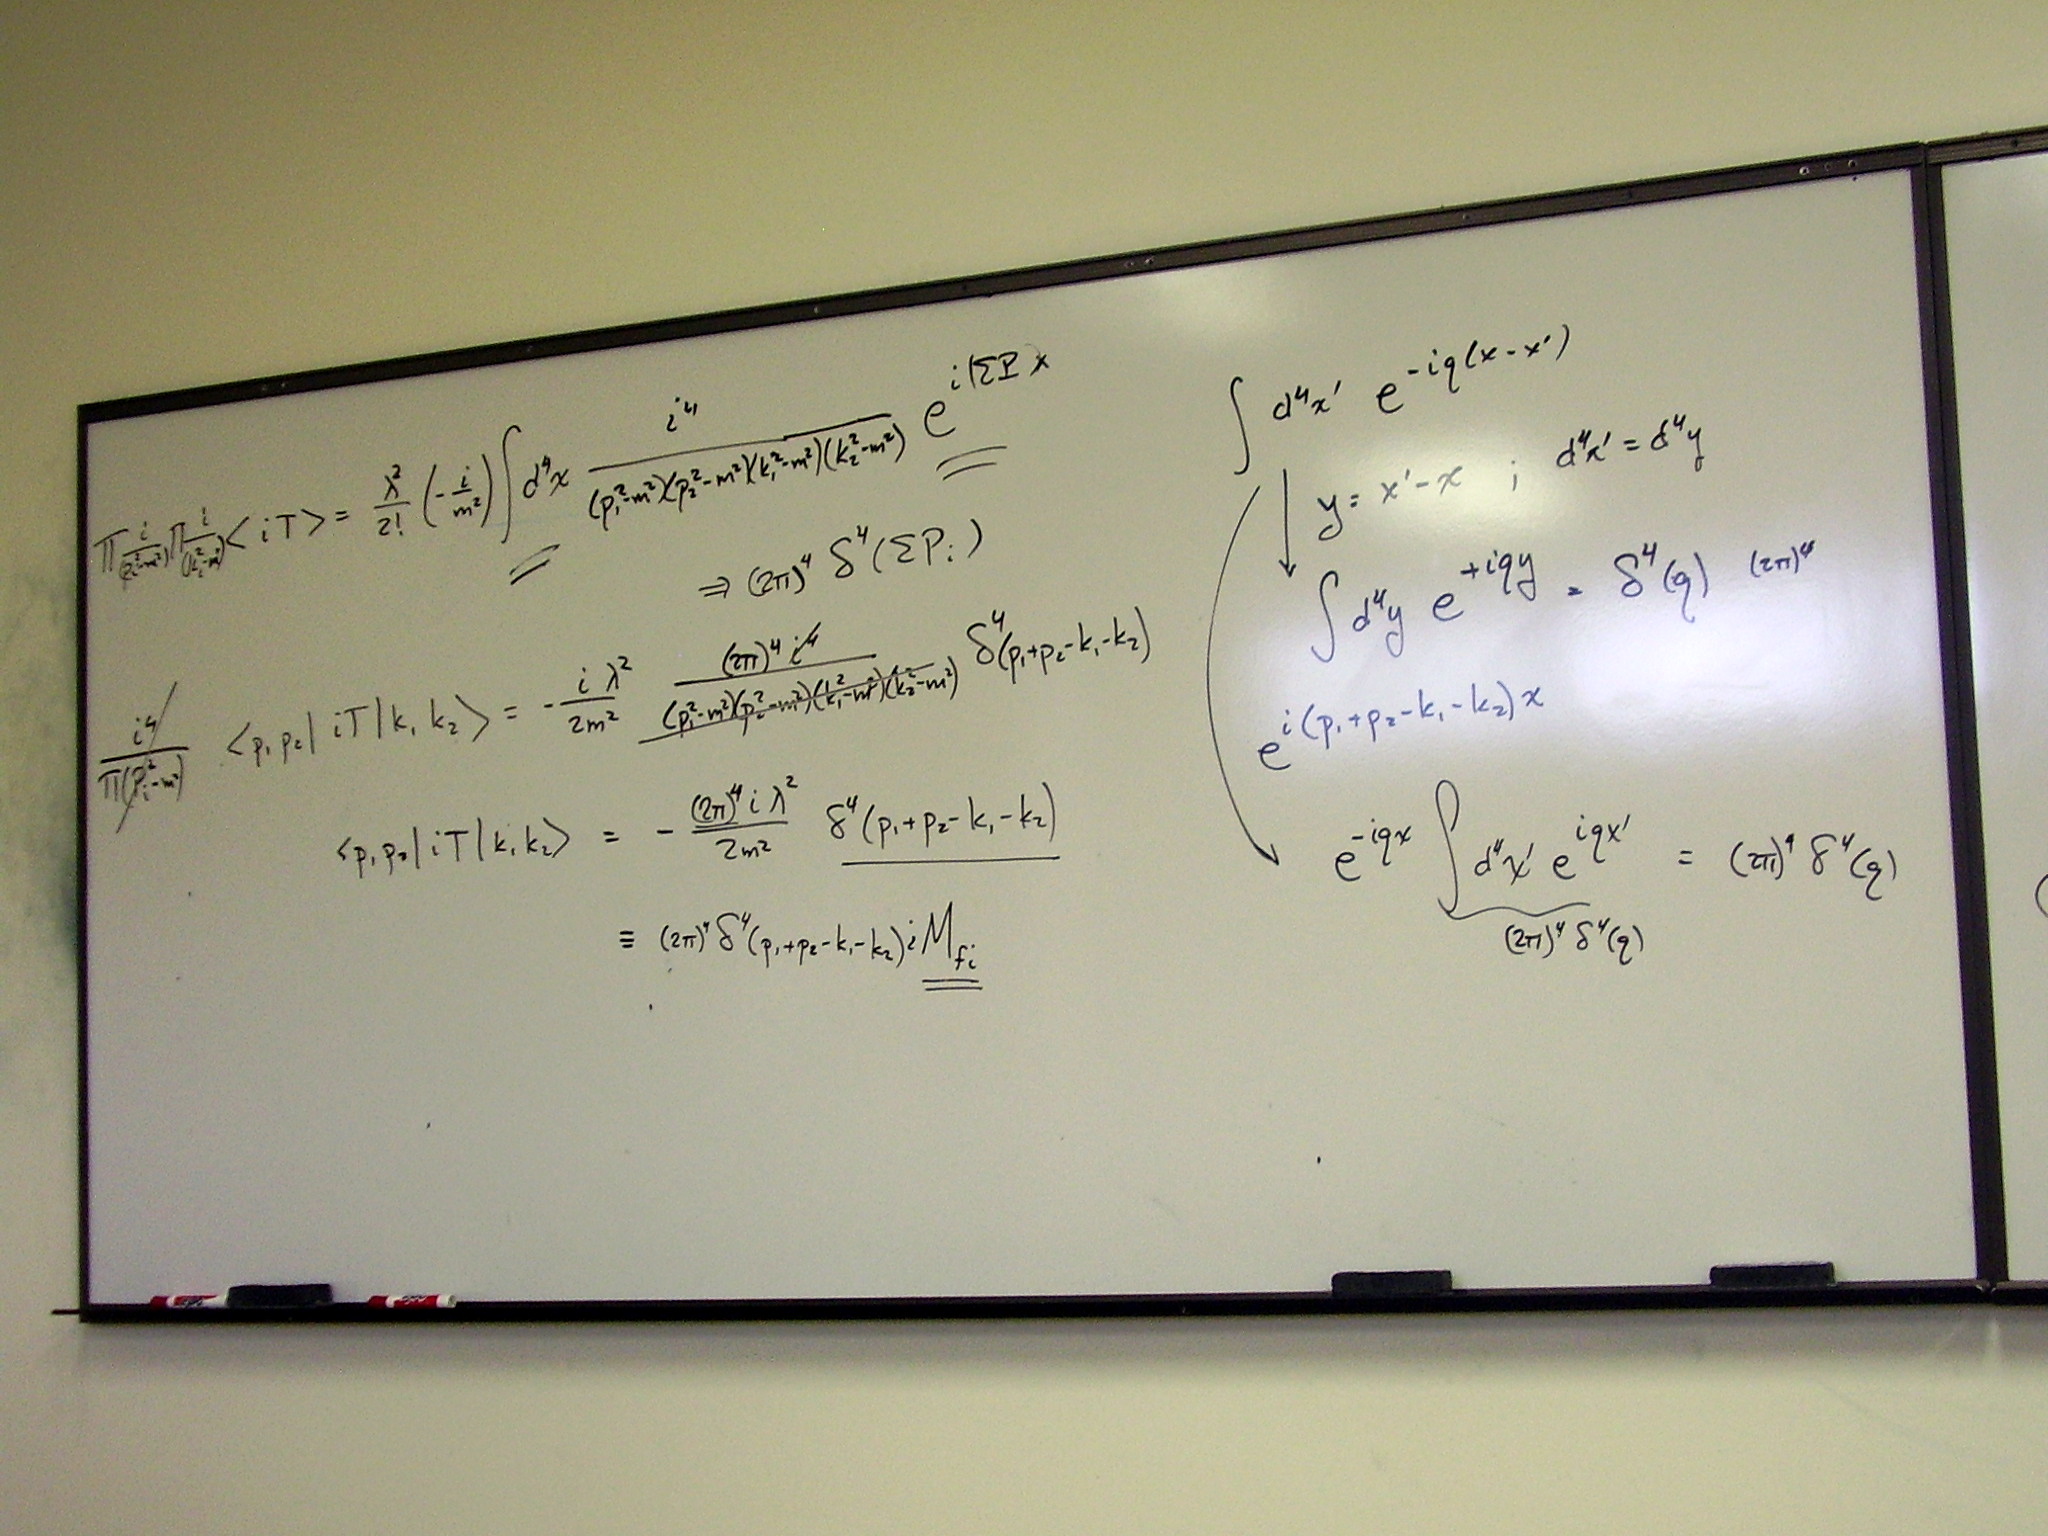 ∏ i/(p_i²-m²) ∏ i/(k_i²-m²) <iT> = λ²/2! (-i/m²) ∫ d⁴x i⁴/((p₁²-m²)(p₂²-m²)(k₁²-m²)(k₂²-m²)) e^{i(ΣP)x}
⇒ (2π)⁴ δ⁴(ΣP_i)
i⁴/∏(P_i²-m²) <p₁p₂|iT|k₁k₂> = -iλ²/2m² (2π)⁴i⁴/((p₁²-m²)(p₂²-m²)(k₁²-m²)(k₂²-m²)) δ⁴(p₁+p₂-k₁-k₂)
<p₁p₂|iT|k₁k₂> = -(2π)⁴iλ²/2m² δ⁴(p₁+p₂-k₁-k₂)
≡ (2π)⁴δ⁴(p₁+p₂-k₁-k₂)iM_{fi}
∫ d⁴x' e^{-iq(x-x')}
y = x'-x ; d⁴x' = d⁴y
∫ d⁴y e^{+iqy} = δ⁴(q) (2π)⁴
e^{i(p₁+p₂-k₁-k₂)x}
e^{-iqx} ∫ d⁴x' e^{iqx'} = (2π)⁴ δ⁴(q)
(2π)⁴ δ⁴(q)